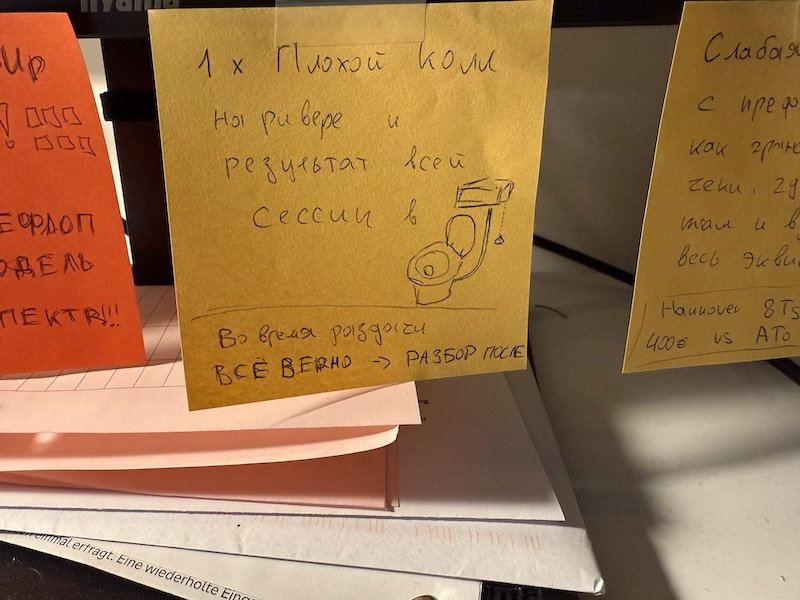 iiyama
ир
ЕФЛОП
ОДЕЛЬ
ПЕКТR!!!
1 х Плохой колл
на ривере и
результат всей
сессии в
Во время раздачи
ВСЁ ВЕРНО -> РАЗБОР ПОСЛЕ
Слабая
с префл
как
чеки, гд
там и в
весь экви
Hannover 8Ts
400€ vs ATo
einmal erfragt. Eine wiederholte Eing